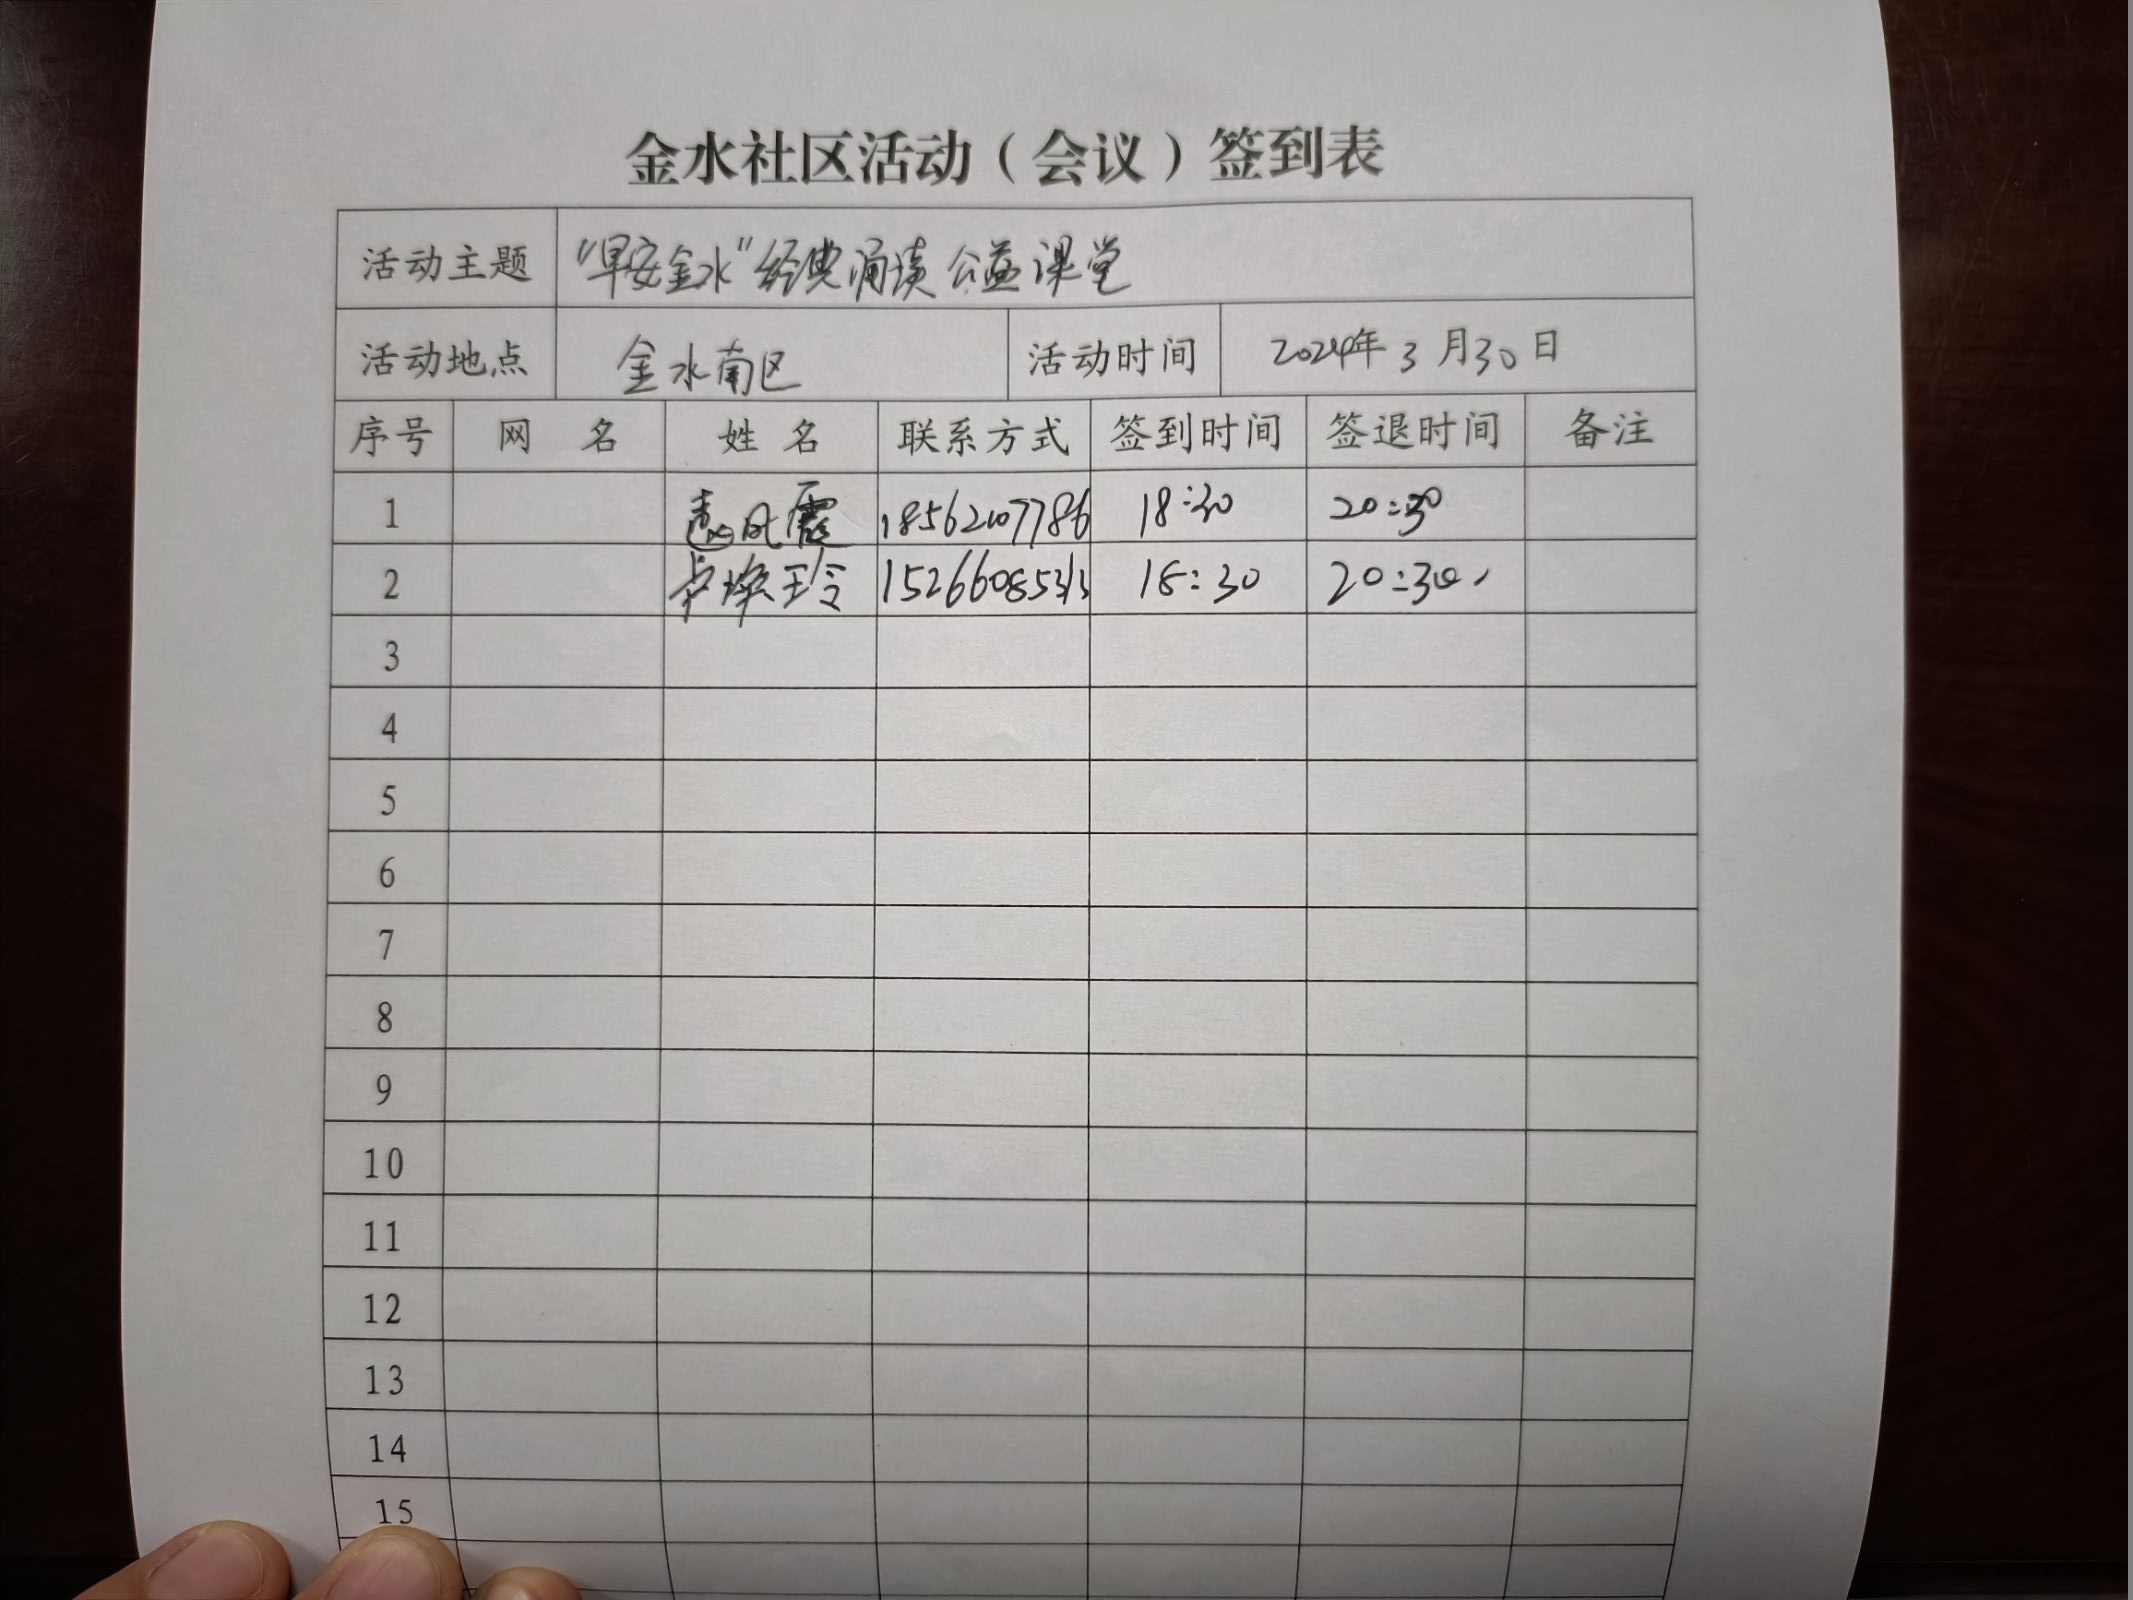 金水社区活动（会议）签到表
活动主题 “早安金水”经典诵读公益课堂
活动地点 金水南区 活动时间 2024年3月30日
序号 网 名 姓 名 联系方式 签到时间 签退时间 备注
1 18562107786 18:30 20:30
2 卢焕玲 15266085313 18:30 20:30
3
4
5
6
7
8
9
10
11
12
13
14
15